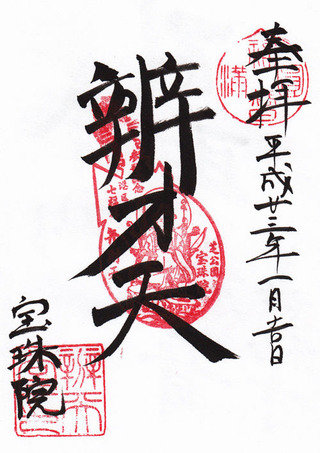 奉拝
平成廿三年一月吉日
辨才天
芝公園
宝珠院
宝珠院